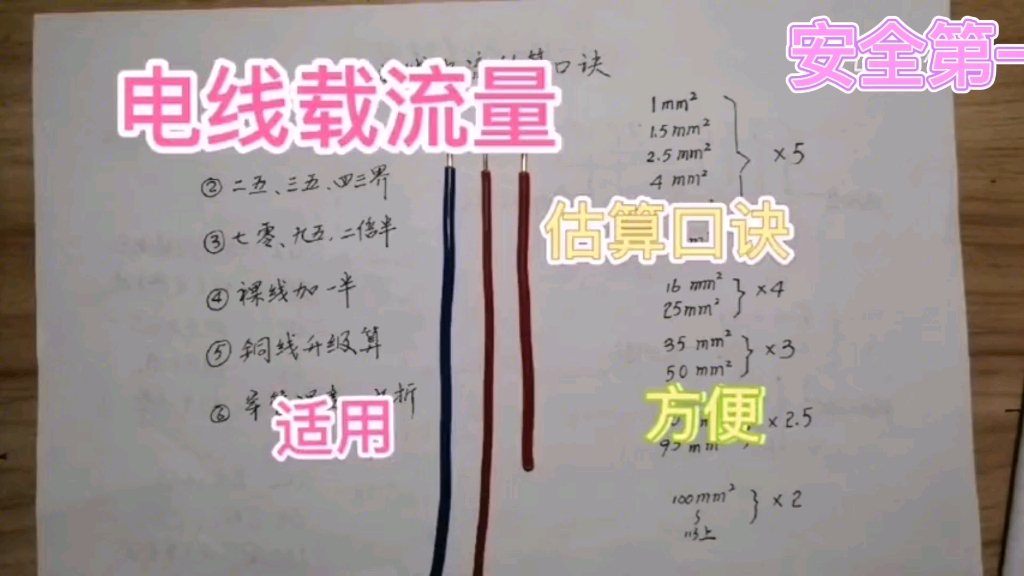 安全第一
口诀
电线载流量
② 二五、三五、四三界
③ 七零、九五、二倍半
④ 裸线加一半
⑤ 铜线升级算
折
适用
1 mm²
1.5 mm²
2.5 mm²
4 mm²
×5
估算口诀
16 mm²
25 mm²
×4
35 mm²
50 mm²
×3
方便
95 mm
×2.5
100 mm²
以上
×2